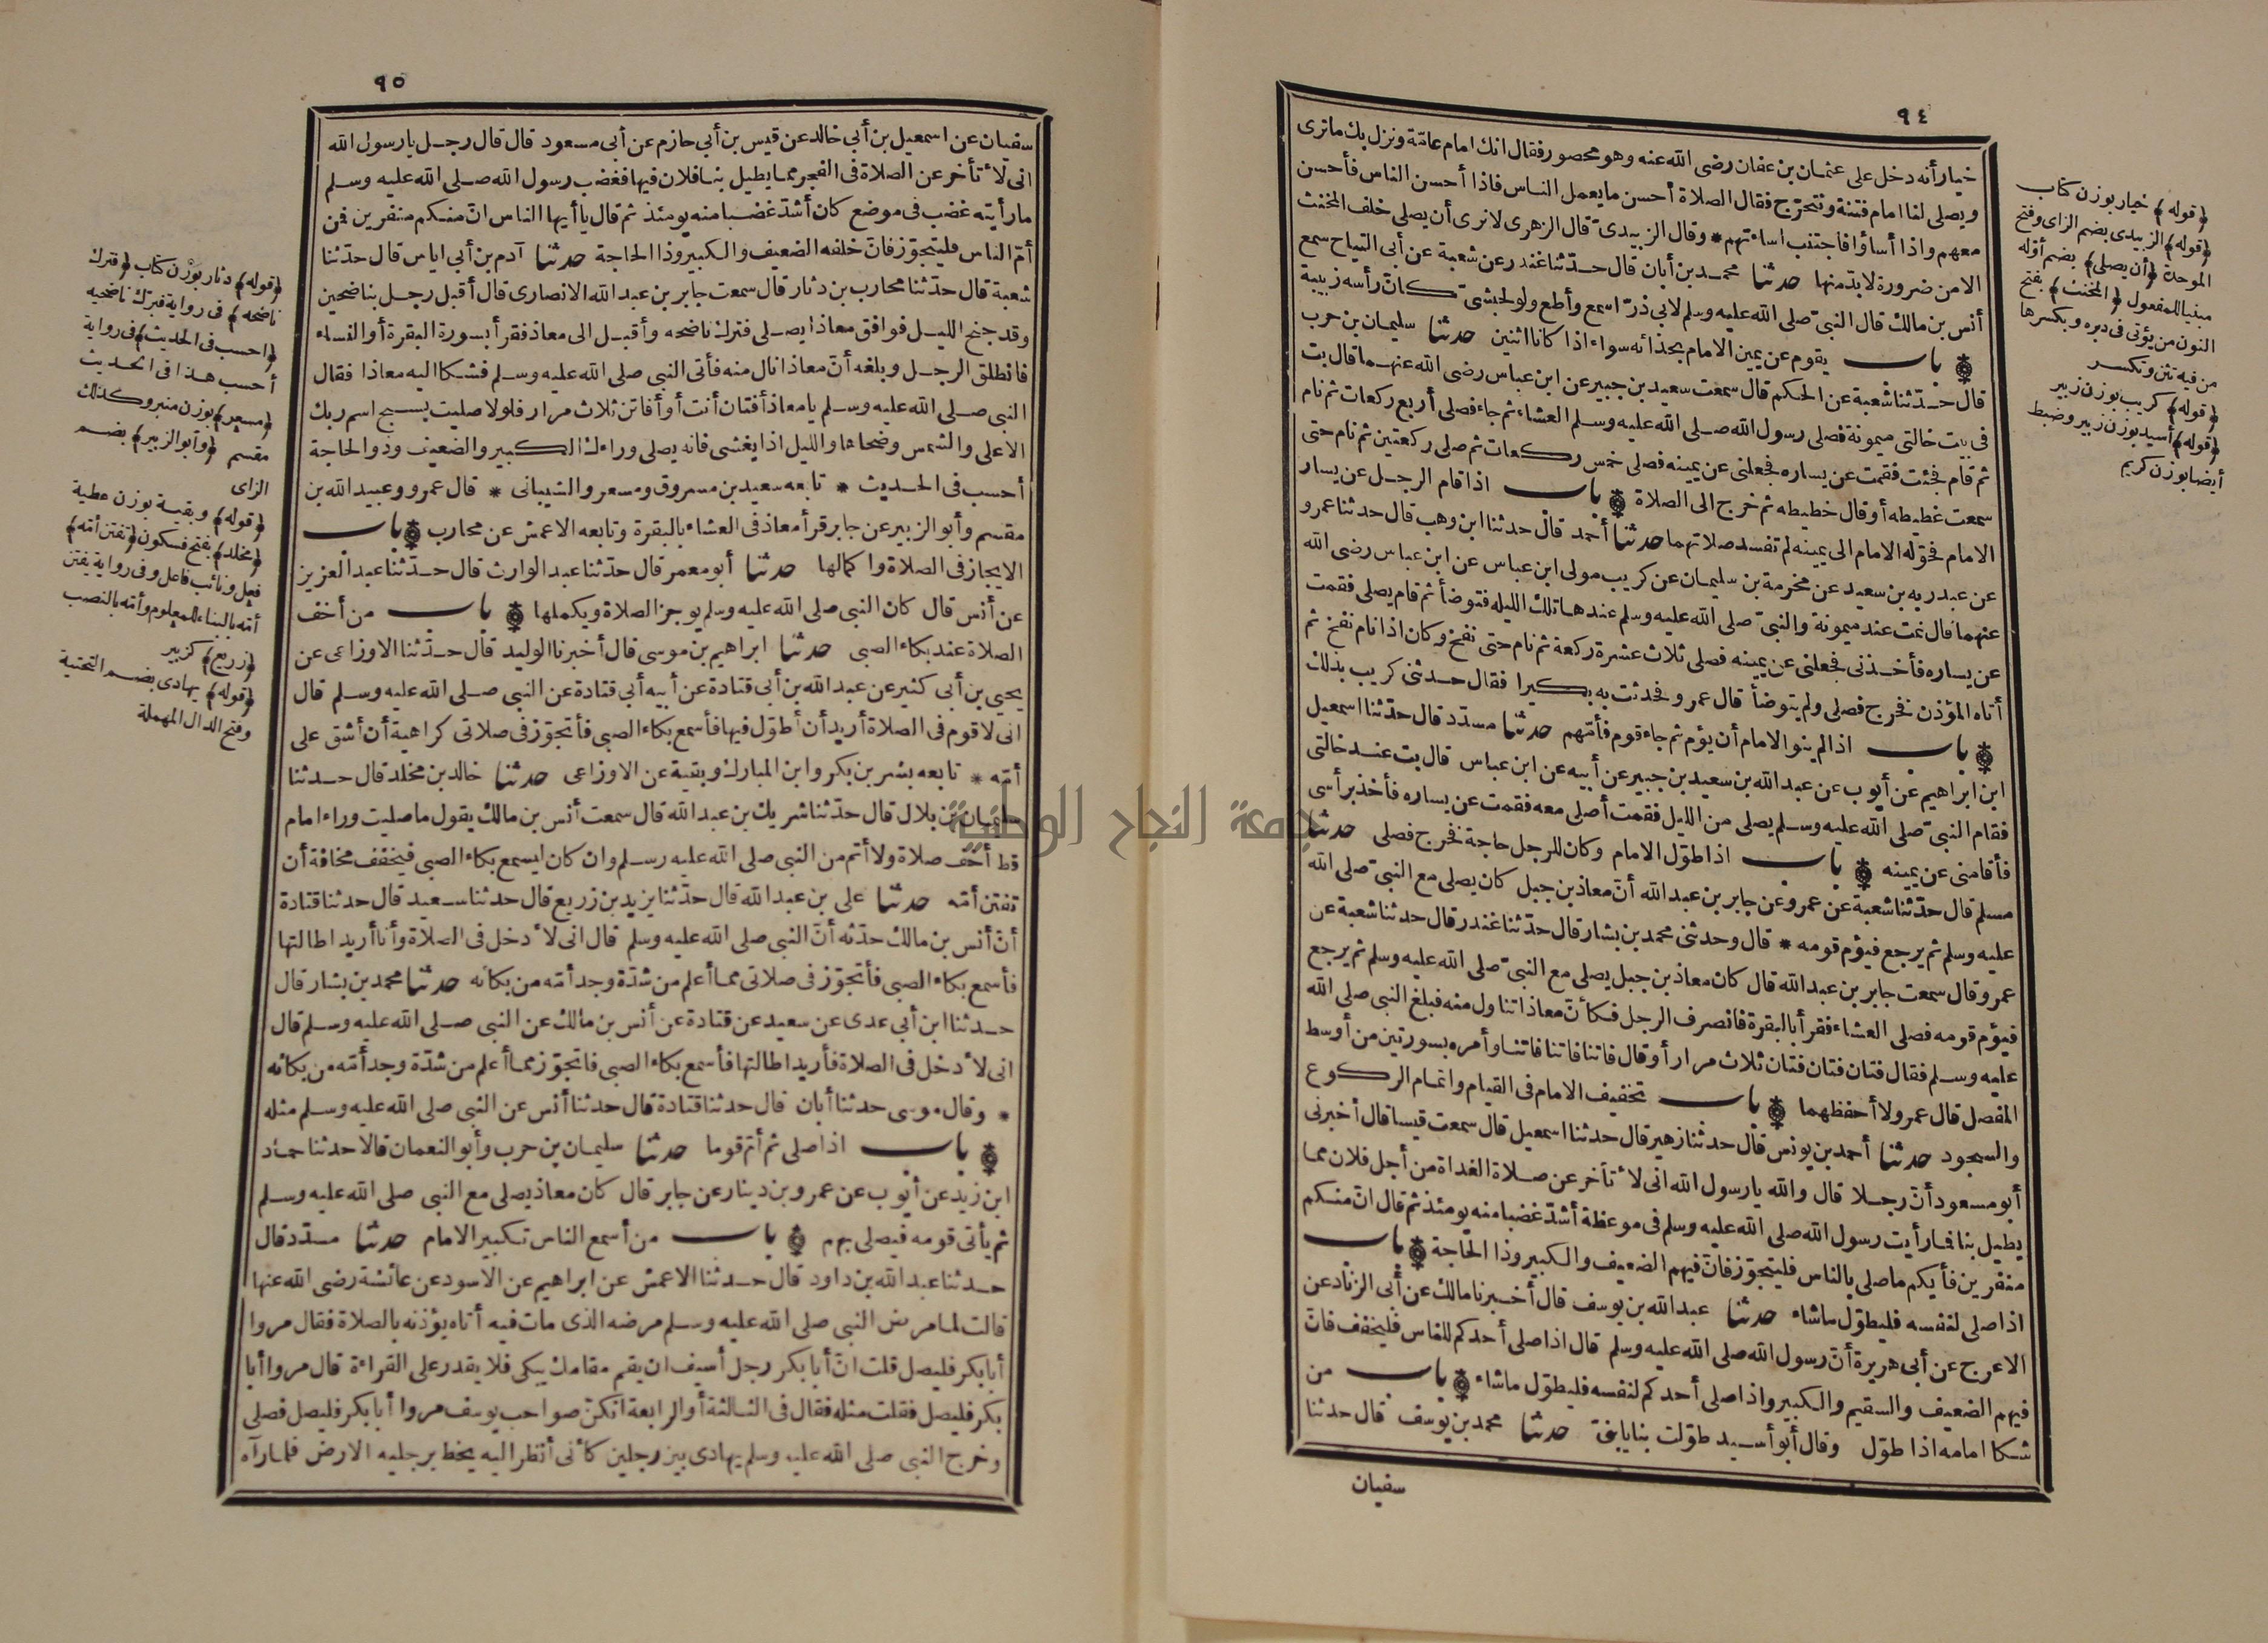 ٩٤
خيار أنه دخل على عثمان بن عفان رضى الله عنه وهو محصور فقال انك امام عامّة ونزل بك ماترى
ويصلى لنا امام فتنة ونتحرّج فقال الصلاة أحسن مايعمل الناس فاذا أحسن الناس فأحسن
معهم واذا أساؤا فاجتنب اساءتهم * وقال الزبيدىّ قال الزهرى لانرى أن يصلى خلف المخنث
الامن ضرورة لابدّ منها حدثنا محمد بن أبان قال حدّثنا غندر عن شعبة عن أبى التياح سمع
أنس بن مالك قال النبىّ صلى الله عليه وسلم لابى ذرّ اسمع وأطع ولو لحبشىّ كانّ رأسه زبيبة
باب يقوم عن يمين الامام بحذائه سواء اذا كانا اثنين حدثنا سليمان بن حرب
قال حدّثنا شعبة عن الحكم قال سمعت سعيد بن جبير عن ابن عباس رضى الله عنهما قال بت
فى بيت خالتى ميمونة فصلى رسول الله صلى الله عليه وسلم العشاء ثم جاء فصلى أربع ركعات ثم نام
ثم قام فجئت فقمت عن يساره فجعلنى عن يمينه فصلى خمس ركعات ثم صلى ركعتين ثم نام حتى
سمعت غطيطه أو قال خطيطه ثم خرج الى الصلاة باب اذا قام الرجل عن يسار
الامام فحوّله الامام الى يمينه لم تفسد صلاتهما حدثنا أحمد قال حدثنا ابن وهب قال حدثنا عمرو
عن عبدربه بن سعيد عن مخرمة بن سليمان عن كريب مولى ابن عباس عن ابن عباس رضى الله
عنهما قال نمت عند ميمونة والنبىّ صلى الله عليه وسلم عندها تلك الليله فتوضأ ثم قام يصلى فقمت
عن يساره فأخذنى فجعلنى عن يمينه فصلى ثلاث عشرة ركعة ثم نام حتى نفخ وكان اذا نام نفخ ثم
أتاه المؤذن فخرج فصلى ولم يتوضأ قال عمرو فحدثت به بكيرا فقال حدثنى كريب بذلك
باب اذا لم ينو الامام أن يؤم ثم جاء قوم فأمّهم حدثنا مسدد قال حدّثنا اسمعيل
ابن ابراهيم عن أيوب عن عبد الله بن سعيد بن جبير عن أبيه عن ابن عباس قال بت عند خالتى
فقام النبىّ صلى الله عليه وسلم يصلى من الليل فقمت أصلى معه فقمت عن يساره فأخذ برأسى
فأقامنى عن يمينه باب اذا طوّل الامام وكان للرجل حاجة فخرج فصلى حدثنا
مسلم قال حدّثنا شعبة عن عمرو عن جابر بن عبد الله أنّ معاذ بن جبل كان يصلى مع النبىّ صلى الله
عليه وسلم ثم يرجع فيؤم قومه * قال وحدثنى محمد بن بشار قال حدّثنا غندر قال حدثنا شعبة عن
عمرو قال سمعت جابر بن عبد الله قال كان معاذ بن جبل يصلى مع النبىّ صلى الله عليه وسلم ثم يرجع
فيؤم قومه فصلى العشاء فقرأ بالبقرة فانصرف الرجل فكأنّ معاذا تناول منه فبلغ النبى صلى الله
عليه وسلم فقال فتان فتان فتان ثلاث مرار أو قال فاتنا فاتنا فاتنا وأمره بسورتين من أوسط
المفصل قال عمرو لا أحفظهما باب تخفيف الامام فى القيام واتمام الركوع
والسجود حدثنا أحمد بن يونس قال حدثنا زهير قال حدثنا اسمعيل قال سمعت قيسا قال أخبرنى
أبو مسعود أنّ رجلا قال والله يارسول الله انى لأتأخر عن صلاة الغداة من أجل فلان مما
يطيل بنا فما رأيت رسول الله صلى الله عليه وسلم فى موعظة أشدّ غضبا منه يومئذ ثم قال انّ منكم
منفرين فأيكم ماصلى بالناس فليتجوّز فانّ فيهم الضعيف والكبير وذا الحاجة باب
اذا صلى لنفسه فليطوّل ماشاء حدثنا عبد الله بن يوسف قال أخبرنا مالك عن أبى الزناد عن
الاعرج عن أبى هريرة أنّ رسول الله صلى الله عليه وسلم قال اذا صلى أحدكم للناس فليخفف فانّ
فيهم الضعيف والسقيم والكبير واذا صلى أحدكم لنفسه فليطوّل ماشاء باب من
شكا امامه اذا طوّل وقال أبو أسيد طوّلت بنا يابنىّ حدثنا محمد بن يوسف قال حدثنا
سفيان
﴿قوله﴾ خيار بوزن كتاب
﴿قوله﴾ الزبيدى بضم الزاى وفتح
الموحدة ﴿أن يصلى﴾ بضم أوّله
مبنيا للمفعول ﴿المخنث﴾ بفتح
النون من يؤتى فى دبره وبكسرها
من فيه تثن وتكسر
﴿قوله﴾ كريب بوزن زبير
﴿قوله﴾ أسيد بوزن زبير وضبط
أيضا بوزن كريم
٩٥
سفيان عن اسمعيل بن أبى خالد عن قيس بن أبى حازم عن أبى مسعود قال قال رجل يارسول الله
انى لأتأخر عن الصلاة فى الفجر مما يطيل بنا فلان فيها فغضب رسول الله صلى الله عليه وسلم
مارأيته غضب فى موضع كان أشدّ غضبا منه يومئذ ثم قال ياأيها الناس انّ منكم منفرين فمن
أمّ الناس فليتجوّز فانّ خلفه الضعيف والكبير وذا الحاجة حدثنا آدم بن أبى اياس قال حدّثنا
شعبة قال حدّثنا محارب بن دثار قال سمعت جابر بن عبد الله الانصارى قال أقبل رجل بناضحين
وقد جنح الليل فوافق معاذا يصلى فترك ناضحه وأقبل الى معاذ فقرأ بسورة البقرة أو النساء
فانطلق الرجل وبلغه أنّ معاذا نال منه فأتى النبى صلى الله عليه وسلم فشكا اليه معاذا فقال
النبى صلى الله عليه وسلم يامعاذ أفتان أنت أو أفاتن ثلاث مرار فلولا صليت بسبح اسم ربك
الاعلى والشمس وضحاها والليل اذا يغشى فانه يصلى وراءك الكبير والضعيف وذو الحاجة
أحسب فى الحديث * تابعه سعيد بن مسروق ومسعر والشيبانى * قال عمرو وعبيد الله بن
مقسم وأبو الزبير عن جابر قرأ معاذ فى العشاء بالبقرة وتابعه الاعمش عن محارب باب
الايجاز فى الصلاة واكمالها حدثنا أبو معمر قال حدّثنا عبد الوارث قال حدّثنا عبد العزيز
عن أنس قال كان النبى صلى الله عليه وسلم يوجز الصلاة ويكملها باب من أخف
الصلاة عند بكاء الصبى حدثنا ابراهيم بن موسى قال أخبرنا الوليد قال حدّثنا الاوزاعى عن
يحيى بن أبى كثير عن عبد الله بن أبى قتادة عن أبيه أبى قتادة عن النبى صلى الله عليه وسلم قال
انى لاقوم فى الصلاة أريد أن أطوّل فيها فأسمع بكاء الصبى فأتجوّز فى صلاتى كراهية أن أشق على
أمّه * تابعه بشر بن بكر وابن المبارك وبقية عن الاوزاعى حدثنا خالد بن مخلد قال حدثنا
سليمان بن بلال قال حدّثنا شريك بن عبد الله قال سمعت أنس بن مالك يقول ماصليت وراء امام
قط أخف صلاة ولا أتم من النبى صلى الله عليه وسلم وان كان ليسمع بكاء الصبى فيخفف مخافة أن
تفتن أمّه حدثنا على بن عبد الله قال حدّثنا يزيد بن زريع قال حدثنا سعيد قال حدثنا قتادة
أنّ أنس بن مالك حدّثه أنّ النبى صلى الله عليه وسلم قال انى لأدخل فى الصلاة وأنا أريد اطالتها
فأسمع بكاء الصبى فأتجوّز فى صلاتى مما أعلم من شدّة وجد أمّه من بكائه حدثنا محمد بن بشار قال
حدثنا ابن أبى عدى عن سعيد عن قتادة عن أنس بن مالك عن النبى صلى الله عليه وسلم قال
انى لأدخل فى الصلاة فأريد اطالتها فأسمع بكاء الصبى فاتجوّز مما أعلم من شدّة وجد أمّه من بكائه
* وقال موسى حدثنا أبان قال حدثنا قتادة قال حدثنا أنس عن النبى صلى الله عليه وسلم مثله
باب اذا صلى ثم أتم قوما حدثنا سليمان بن حرب وأبو النعمان قالا حدثنا حماد
ابن زيد عن أيوب عن عمرو بن دينار عن جابر قال كان معاذ يصلى مع النبى صلى الله عليه وسلم
ثم يأتى قومه فيصلى بهم باب من أسمع الناس تكبير الامام حدثنا مسدّد قال
حدثنا عبد الله بن داود قال حدثنا الاعمش عن ابراهيم عن الاسود عن عائشة رضى الله عنها
قالت لما مرض النبى صلى الله عليه وسلم مرضه الذى مات فيه أتاه يؤذنه بالصلاة فقال مروا
أبابكر فليصل قلت انّ أبابكر رجل أسيف ان يقم مقامك يبكى فلا يقدر على القراءة قال مروا أبا
بكر فليصل فقلت مثله فقال فى الثالثة أو الرابعة انكنّ صواحب يوسف مروا أبابكر فليصل فصلى
وخرج النبى صلى الله عليه وسلم يهادى بين رجلين كأنى أنظر اليه يخط برجليه الارض فلما رآه
﴿قوله﴾ دثار بوزن كتاب ﴿فترك
ناضحه﴾ فى رواية فبرّك ناضحيه
﴿احسب فى الحديث﴾ فى رواية
أحسب هذا فى الحديث
﴿مسعر﴾ بوزن منبر وكذلك
مقسم ﴿وأبو الزبير﴾ بضم
الزاى
﴿قوله﴾ وبقية بوزن عطية
﴿مخلد﴾ بفتح فسكون ﴿تفتن أمّه﴾
فعل ونائب فاعل وفى رواية يفتن
أمّه بالبناء للمعلوم وأمّه بالنصب
﴿زريع﴾ كزبير
﴿قوله﴾ يهادى بضم التحتية
وفتح الدال المهملة
جامعة النجاح الوطنية